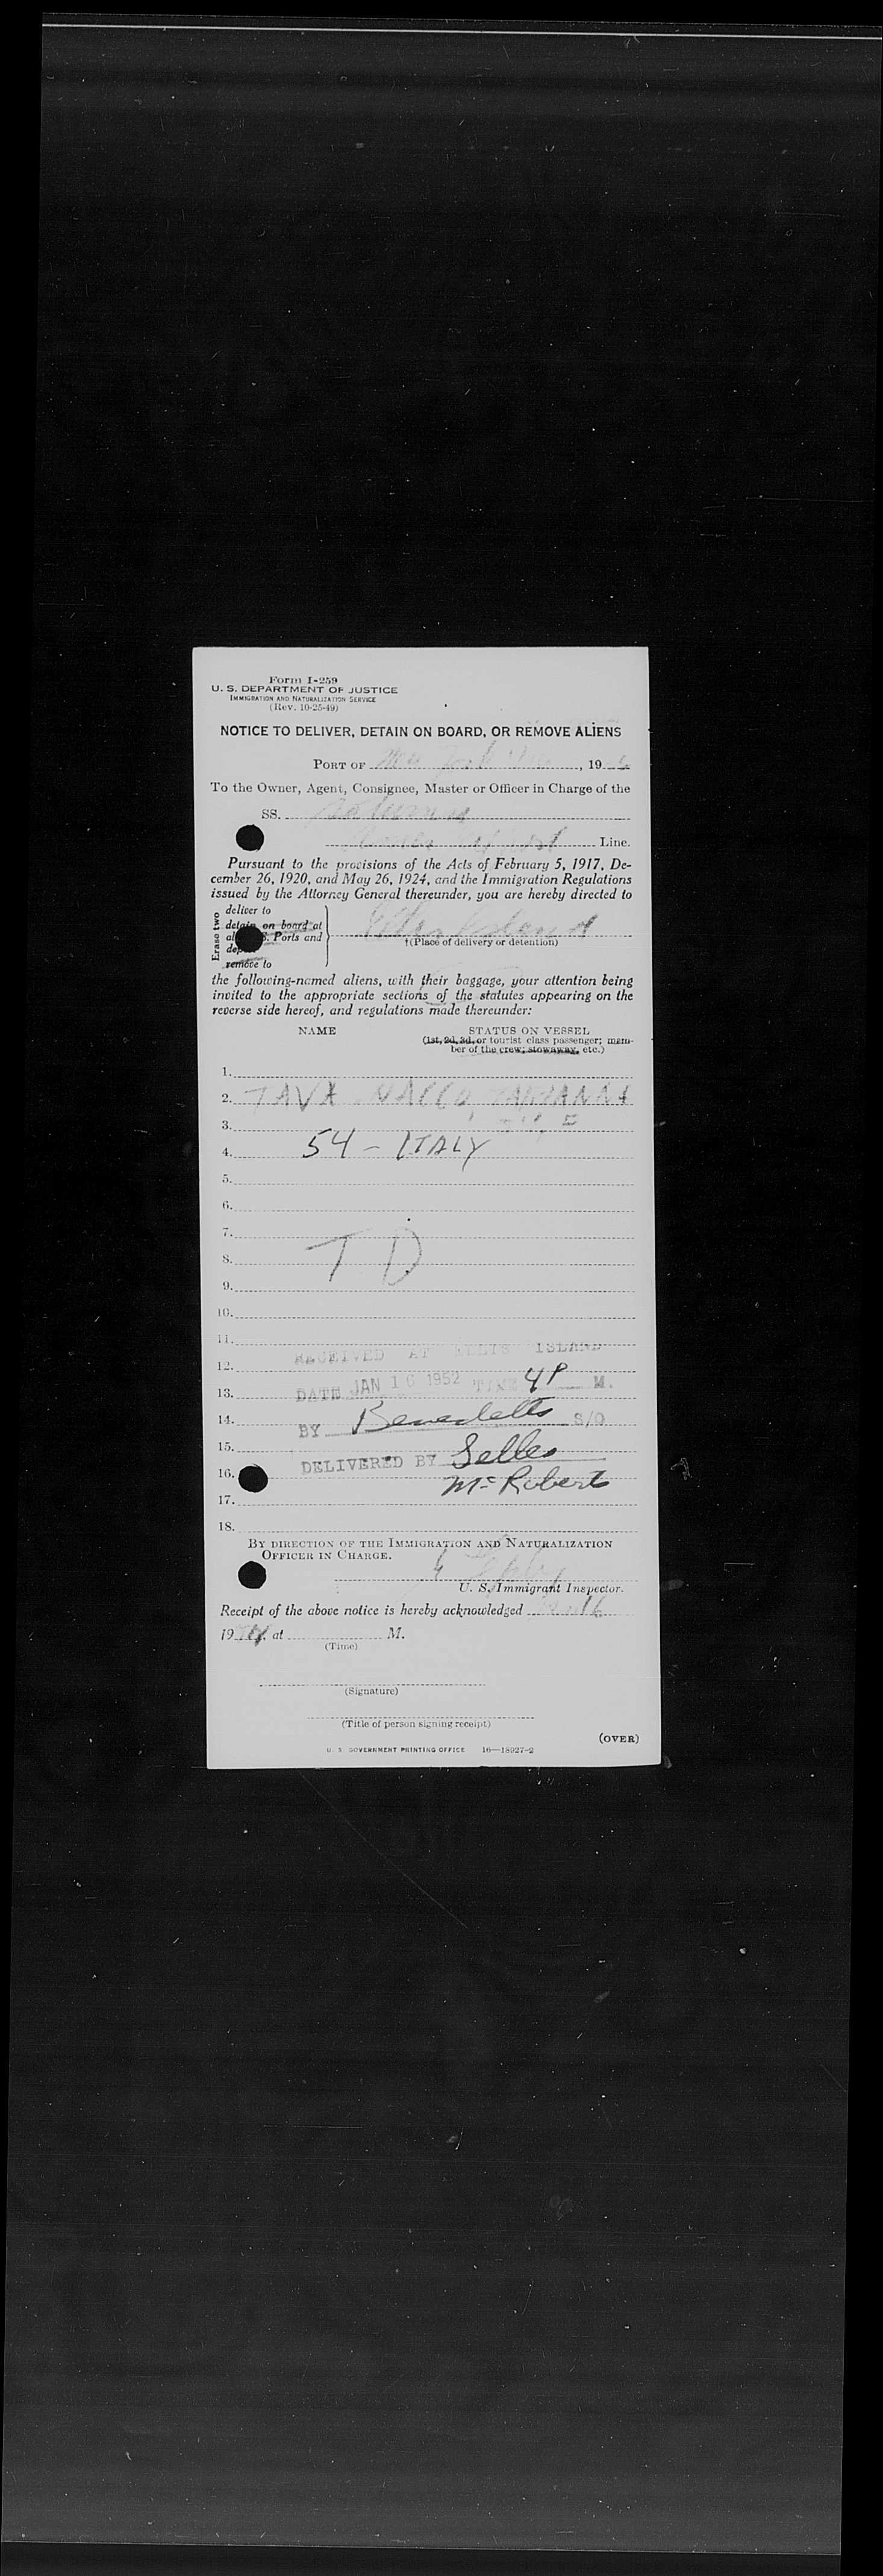 Form I-259
U. S. DEPARTMENT OF JUSTICE
IMMIGRATION AND NATURALIZATION SERVICE
(Rev. 10-25-49)
NOTICE TO DELIVER, DETAIN ON BOARD, OR REMOVE ALIENS
PORT OF New York, 19
To the Owner, Agent, Consignee, Master or Officer in Charge of the
SS.
Line.
Pursuant to the provisions of the Acts of February 5, 1917, De-
cember 26, 1920, and May 26, 1924, and the Immigration Regulations
issued by the Attorney General thereunder, you are hereby directed to
Erase two
deliver to
detain on board at
Ports and
remove to
Ellis Island
†(Place of delivery or detention)
the following-named aliens, with their baggage, your attention being
invited to the appropriate sections of the statutes appearing on the
reverse side hereof, and regulations made thereunder:
NAME STATUS ON VESSEL
(1st, 2d, 3d, or tourist class passenger; mem-
ber of the crew; stowaway, etc.)
1.
2. TAVA
3.
4. 54 - ITALY
5.
6.
7.
8. T D
9.
10.
11.
RECEIVED AT ELLIS ISLAND
12.
DATE JAN 16 1952 TIME 4 P M.
13.
14. BY S/O
15.
DELIVERED BY Selles
16. McRoberts
17.
18.
BY DIRECTION OF THE IMMIGRATION AND NATURALIZATION
OFFICER IN CHARGE.
U. S. Immigrant Inspector.
Receipt of the above notice is hereby acknowledged 16
19 at M.
(Time)
(Signature)
(Title of person signing receipt)
(OVER)
U. S. GOVERNMENT PRINTING OFFICE 16—18927-2